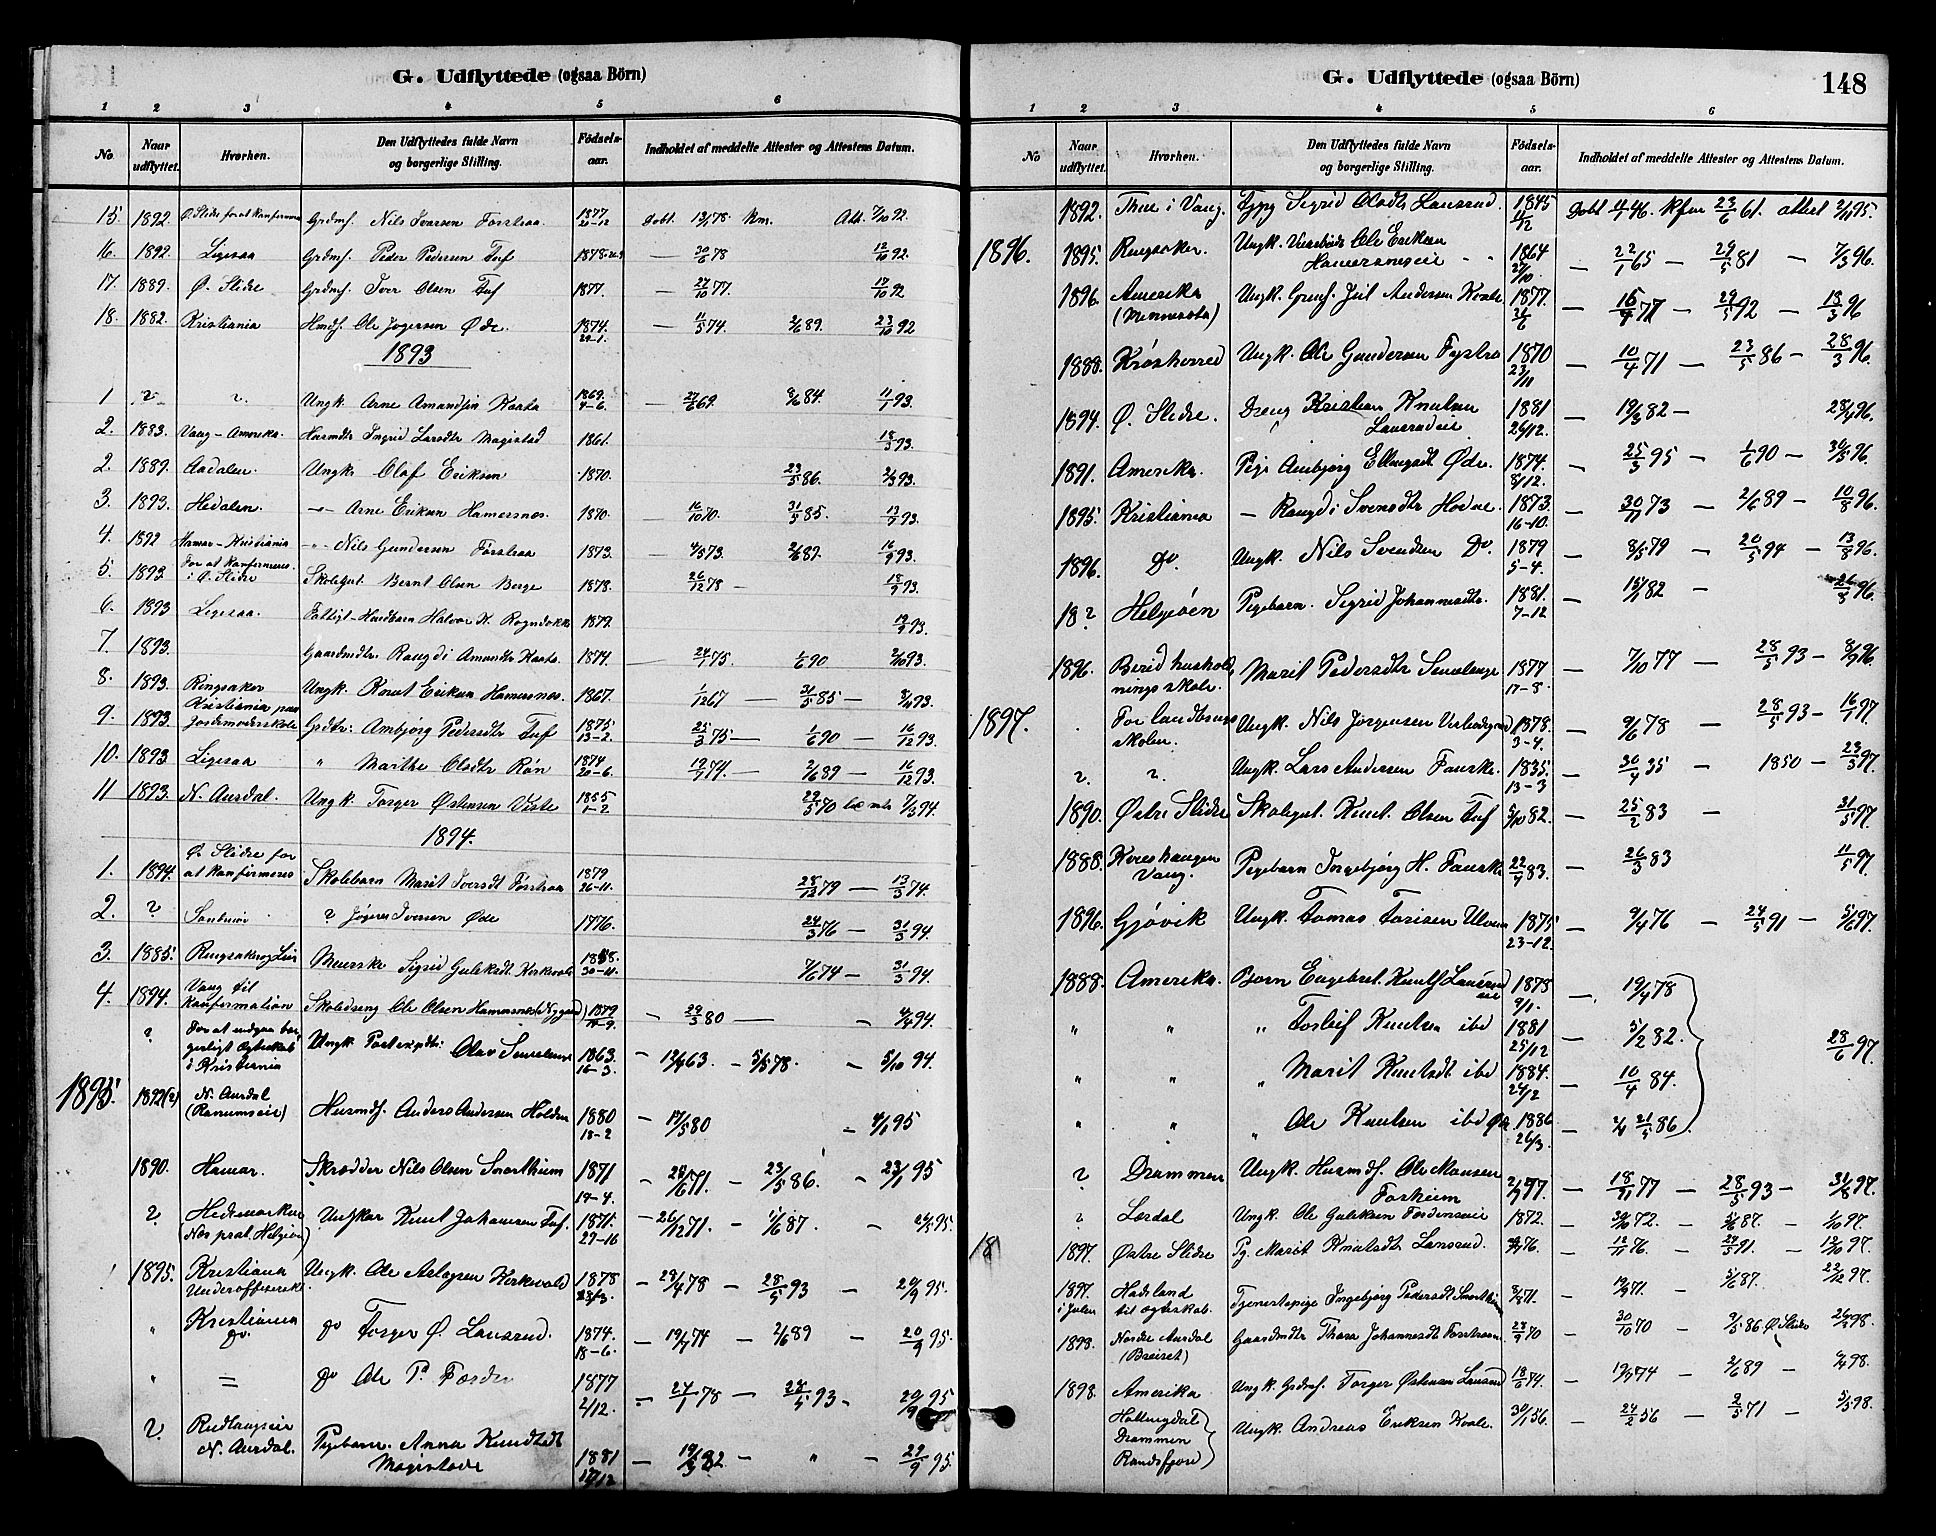 G. Udflyttede (ogsaa Börn)
1 2 3 4 5 6
No. Naar udflyttet. Hvorhen. Den Udflyttedes fulde Navn og borgerlige Stilling. Födsels-aar. Indholdet af meddelte Attester og Attestens Datum.
15. 1892. Ø. Slidre for at konfirmeres Grdmf. Nils Iversen Forstraa 1877 Døbt 13/1 78 Att. 7/10 92.
16. 1892. Ligesaa Grdmf. Peder Pedersen Tuf 1878 — 30/6 78 12/10 92.
17. 1889. Ø. Slidre Grdmf. Iver Olsen Tuf 1877. — 27/10 77. 17/10 92
18. 1882. Kristiania Hmdf. Ole Jogersen Øde. 1874. — 11/5 74. 2/6 89. 23/10 92
1893
1 ? ? Ungk. Arne Amundsen Kaata 1869. 4-6. — 27/6 69. 8/6 84. 11/1 93.
2. 1883. Vang - Amerika. Husmdtr Ingrid Larsdtr Magistad 1861. 18/3 93.
2. 1889. Aadalen. Ungk. Olaf Eriksen 1870. 23/5 86. 2/3 93.
3. 1893. Hedalen. —"— Arne Eriksen Hamersnes. 1870. — 16/10 70. 31/5 85. 13/7 93.
4. 1892 Hamar - Kristiania —"— Nils Gundersen Forstraa 1873. — 4/5 73. 2/6 89. 16/9 93.
5. 1893 For at konfirmeres i Ø. Slidre Skolegut Bernt Olsen Berge 1878. 26/12 78 — 18/9 93.
6. 1893 Ligesaa. Fattigl - Husdbarn Halvor K. Rogndokke 1879. 19/9 93.
7. 1893. Gaardmdtr. Rangdi Amundtr Kaata. 1874. — 24/1 75. 1/6 90 2/10 93.
8. 1893. Ringsaker Ungk. Knut Eriksen Hamersnes. 1867. 1/12 67 — 31/5 85 — 8/11 93.
9. 1893. Kristiania paa Jordemoderskole Grdtr: Ambjørg Pedersdtr Tuf 1875 13-2. 25/3 75 — 1/6 90 — 16/12 93.
10. 1893 Ligesaa " Marthe Olsdtr Røn 1874 20-6. 19/7 74. — 2/6 89 — 16/12 93.
11 1893. N. Aurdal. Ungk. Torger Østensen Viste 1855 1-2 29/5 70 7/3 94.
1894.
1. 1894. Ø. Slidre for at konfirmeres Skolebarn Marit Iversdt Forstraa 1879 26-11. 28/12 79 — 13/3 74.
2. ? ? Jøgeres Iversen Øde 1776. 24/3 76 — 31/3 94.
3. 1885. Ringsaker Meierske Sigrid Gulleksdt Kirkevold 30-11. 7/6 74 — 31/3 94.
4. 1894. Vang til konfirmation Skoledreng Ole Olsen Hamersnes (Nygaard) 1879 — 29/3 80 — 4/4 94.
? For at indgaa borgerligt Ægteskab i Kristiania Ungk. Olav Semeleng 1863 16-3. — 12/4 63 — 5/5 78. — 5/10 94.
1895. 1892(?) N. Aurdal (Ranumseie) Husmdf. Anders Andersen Holdn 1880 18-2 — 17/5 80 — 4/1 95
1890. Hamar. Skrædder Nils Olsen Snortheim 1871 19-4. — 28/6 71. — 23/5 86. — 23/1 95
? Hedemarken (Nes prst. Helgøen) Ungkar Knut Johansen Tuf. 1871. — 26/12 71. — 11/6 87. — 2/5 95
1895. Kristiania Underofficersk. Ungk. Ole Aslagsen Kirkevold 1878 — 23/4 78 — 28/5 93 — 20/9 95.
" Kristiania Do. Do Torger Ø. Lansrud. 1874. 18-6. — 19/7 74 — 2/6 89 — 20/9 95.
" = Do Ole P. Fosdn 1877 2/12. — 27/1 78 — 28/5 93 — 20/9 95
? Rudlangseie N. Aurdal. Pigebarn. Anna Knudsdt Magistade 1881 17/12 — 19/3 82 — " — 29/9 95.
G. Udflyttede (ogsaa Börn) 148
1 2 3 4 5 6
No Naar udflyttet. Hvorhen. Den Udflyttedes fulde Navn og borgerlige Stilling. Födsels-aar. Indholdet af meddelte Attester og Attestens Datum.
1892. Thue i Vang. Sigrid Olsdtr Lansrud. 1845 Døbt 4/1 46. Kfm 23/6 61. attest 2/11 95.
1896. 1895. Ringsaker. Ungk. Ole Eriksen Hamersneseie 1864 27/10 — 22/1 65 — 29/5 81 — 7/3 96.
1896. Amerika (Minnesota) Ungk. Jul Andersen Kvale 1877. 26/6 — 15/7 77 — 29/5 92 — 13/3 96
1888. Krøsherred Ungk. Ole Gundersen Fystro 1870 23/11 — 10/4 71 — 23/5 86 — 28/3 96.
1894. Ø. Slidre. Dreng Kristian Knutsen Lansrudeie 1881 26/12. — 19/3 82 — 28/4 96.
1891. Amerika. Pige Ambjørg Ellingsdt Øde. 1874. 8/12. — 25/3 95 — 1/6 90 — 31/5 96.
1895. Kristiania — Rangdi Svensdtr Hovne. 1873. 16-10. — 30/11 73 — 2/6 89 — 10/8 96.
1896. Do. Ungk. Nils Svendsen Do. 1879 5-4. — 8/5 79 — 20/5 94 — 13/8 96.
18? Helgøen Pigebarn. Sigrid Johannesdtr. 1881 7-12 — 15/1 82 — 26/8 96.
1896. Berid husholdningsskole. Marit Pedersdtr Semelenge 1877 17-8. — 7/10 77 — 28/5 93 — 8/9 96.
1897. For landbrugsskolen. Ungk. Nils Jørgensen 1878. 3-4. — 9/6 78 — 28/5 93 — 16/1 97.
? ? Ungk. Lars Andersen Fauske. 1835. 13-3 — 30/4 35 — 1850 — 23/3 97.
1890. Østre Slidre Skolegut. Knut Olsen Tuf 5/10 82. — 25/2 83 — 31/5 97.
1888. Kvershaugen Vang. Pigebarn Ingebjørg H. Fauske 22/4 83. — 26/3 83 11/5 97.
1896. Gjøvik Ungk. Tomas Torisen Ulven 1875 23-12. — 9/4 76 — 24/5 91 — 5/6 97.
1888. Amerika. Børn Engebret Knuts Lansrud eie 1878 9/1. — 19/4 78
" " " Torleif Knutsen ibd 1881 25/12 — 5/2 82.
" " " Marit Knutsdt ibd 1884. 24/2 — 10/4 84. 28/6 97.
" " " Ole Knutsen ibd 1886 26/3. — 21/5 86.
? Drammen Ungk. Husmdf. Ole Monsen Forheim — 18/11 77 — 28/5 93 — 31/8 97.
? Lærdal Ungk. Ole Gulliksen 1872. — 30/10 72. — 5/6 87. — 1/10 97.
18 1897. Østre Slidre Pg. Marit Knutsdtr Lansrud. — 12/11 76. — 24/5 91. — 12/10 97.
1897. i Julen Hadeland til Ægteskab. Tjenestepige Ingebjørg Pedersdt Snortheim 8/8 71. — 19/9 71. — 5/6 87. — 22/12 97.
1898. Nordre Aurdal (Breiset) Gaardmdtr Thora Johannesdt Forstraa 23/9 70 — 30/10 70 — 9/5 86 Ø. Slidre 26/3 98.
1898. Amerika Ungk. Grdmf. Torger Østensen Lansrud 18/6 74. — 19/7 74 — 2/6 89 — 2/4 98.
Hallingdal Drammen Randsfjord Ungk. Andreas Eriksen Kvale. 30/1 56. — 24/2 56 — 2/5 71 — 5/5 98.